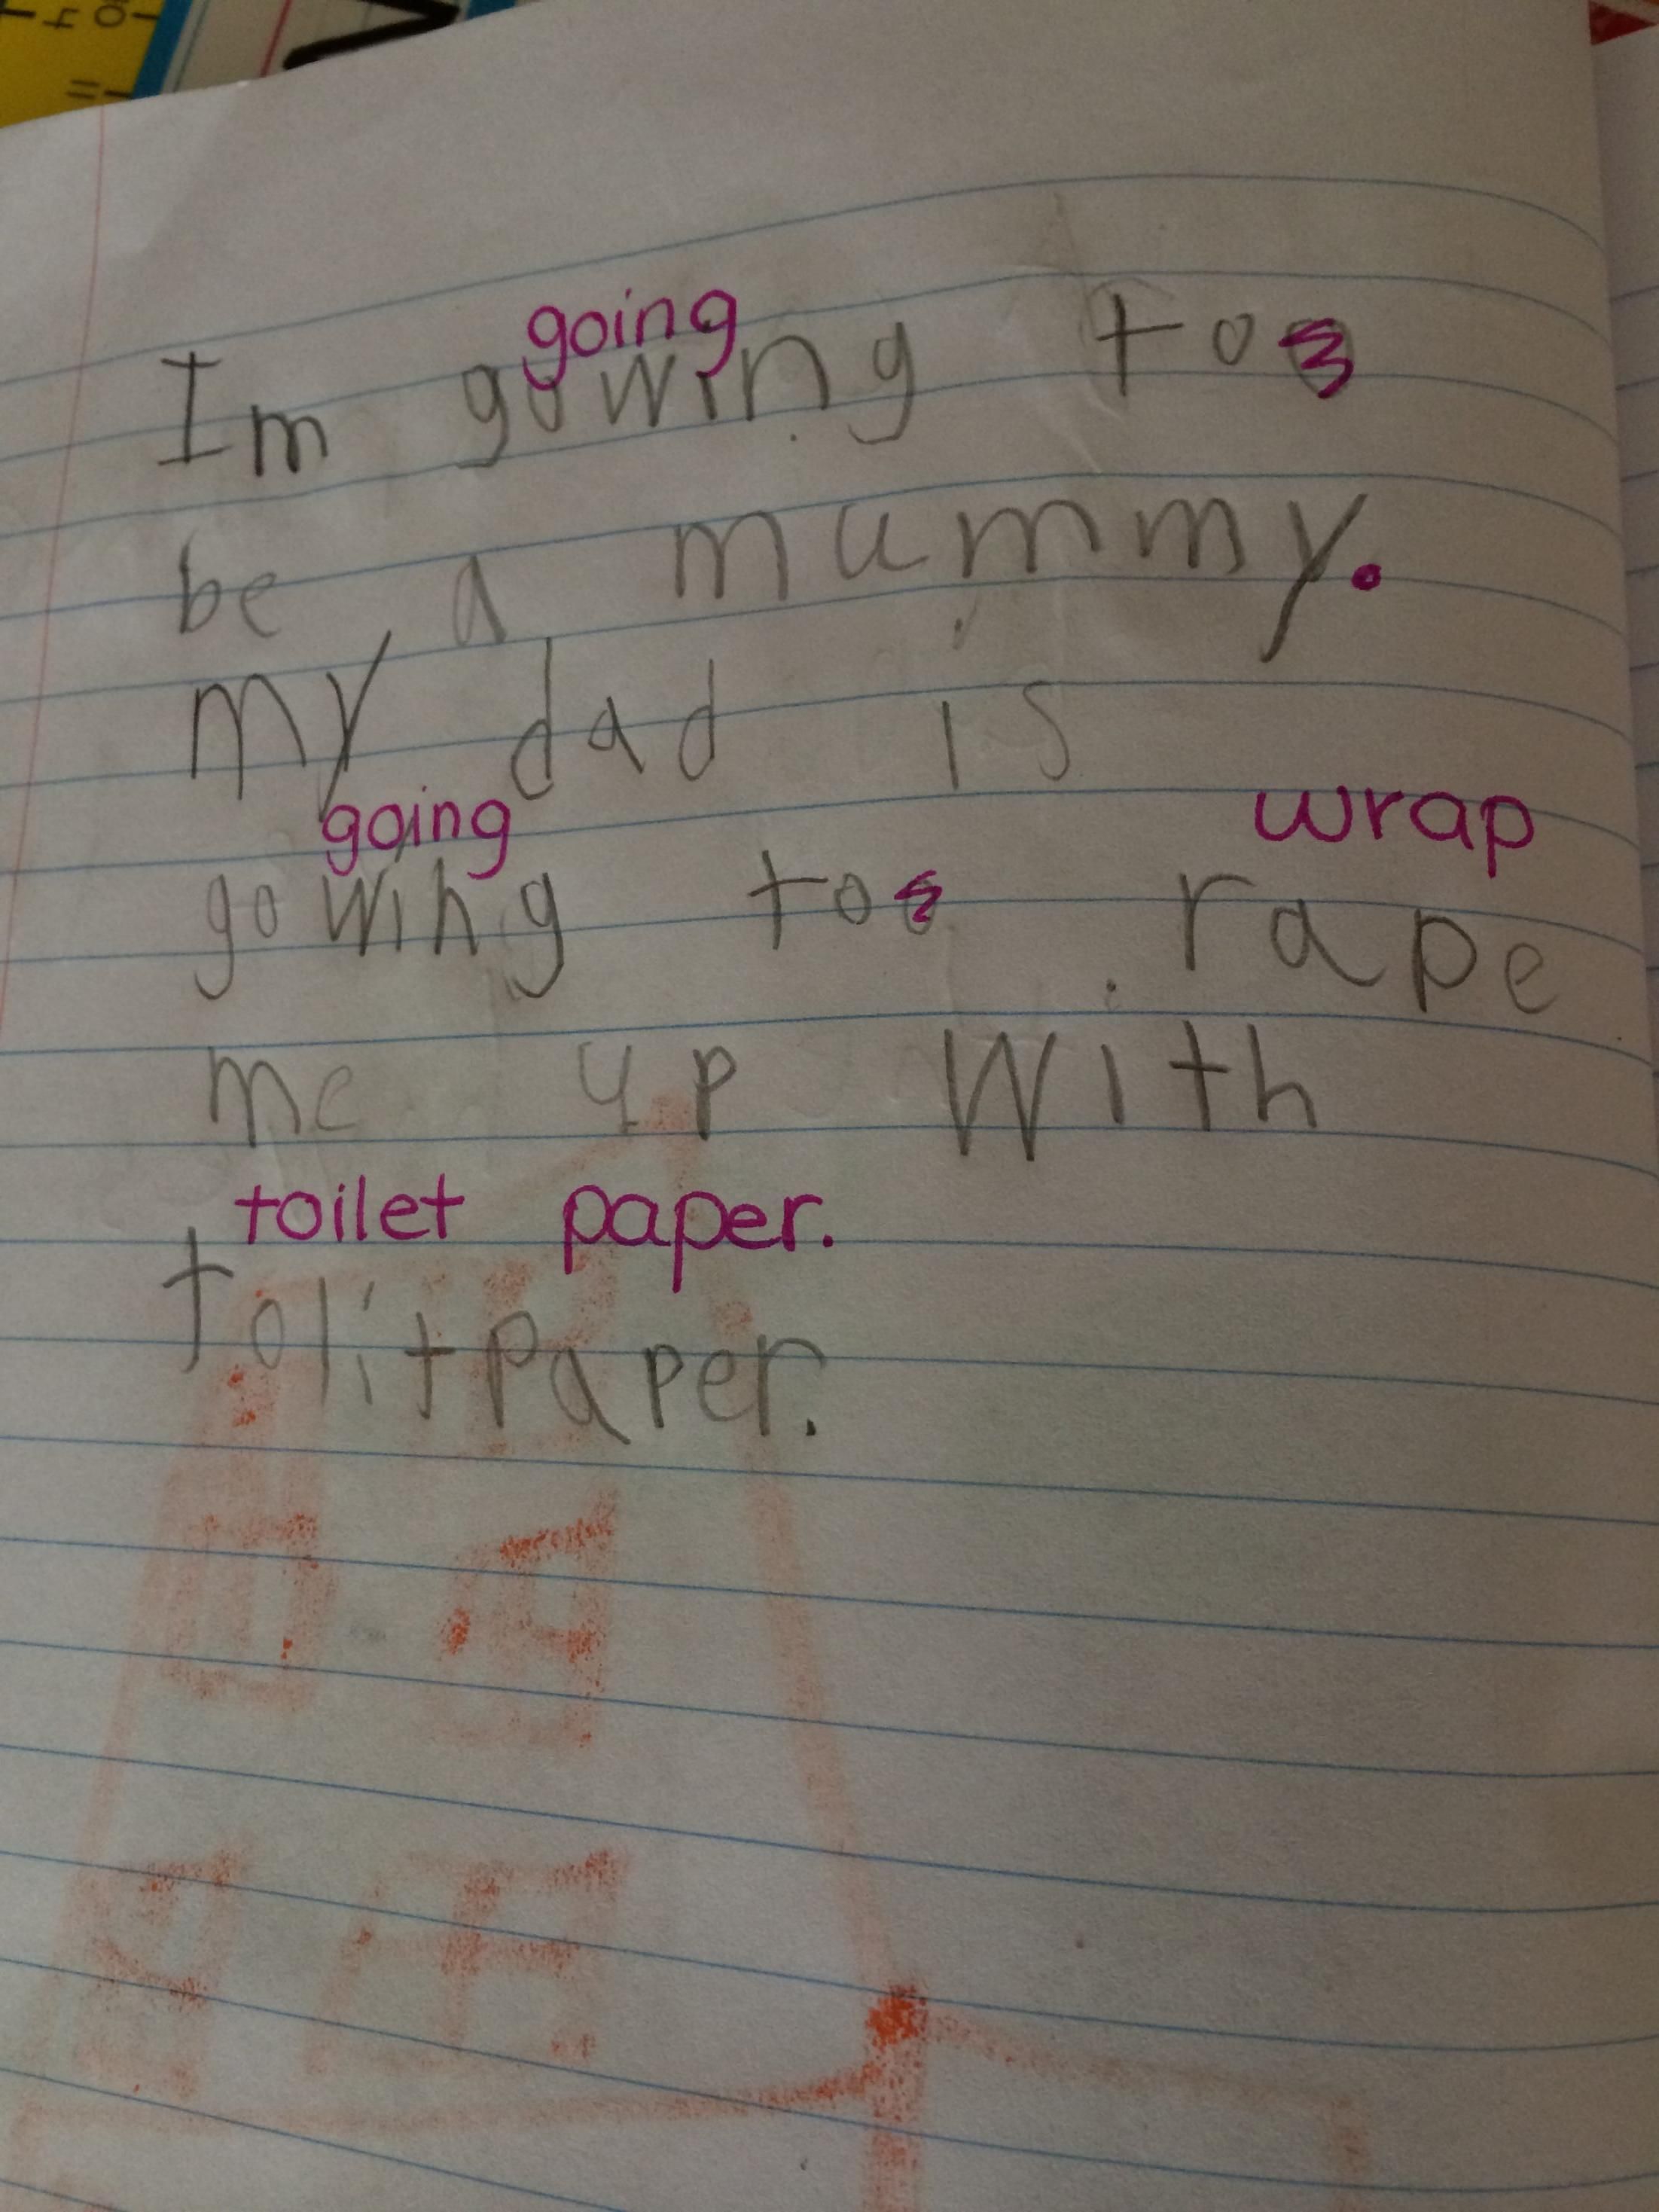 going
Im gowing too
be a mummy.
my dad is
going wrap
gowing too rape
me up With
toilet paper.
tolitPaper.